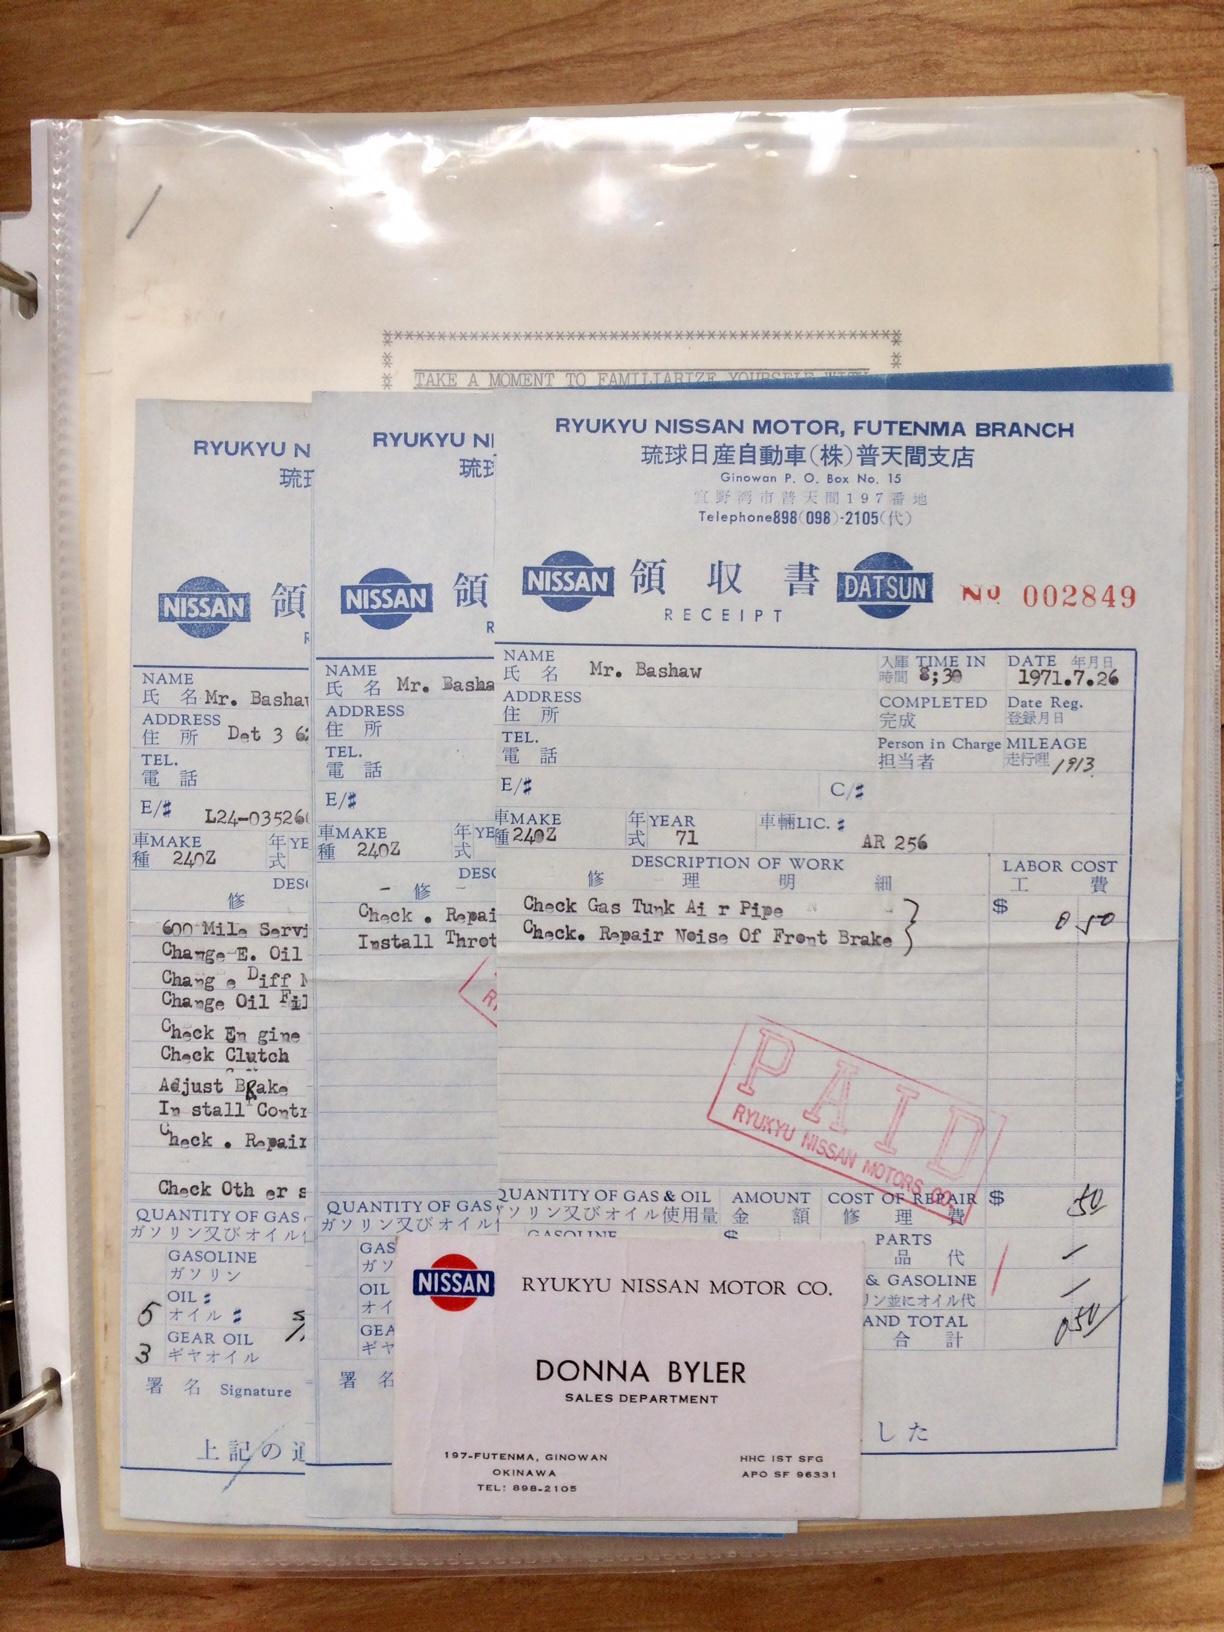 TAKE A MOMENT TO FAMILIARIZE YOURSELF WITH
RYUKYU N
琉
NISSAN
領
NAME
氏 名 Mr. Bashaw
ADDRESS
住 所 Det 3
TEL.
電 話
E/# L24-03526
車MAKE 年YE
種 240Z 式
DESC
修
600 Mile Servi
Change E. Oil
Change Diff
Change Oil Fil
Check Engine
Check Clutch
Adjust Brake
In stall Contr
Check . Repair
Check Oth er s
QUANTITY OF GAS
ガソリン及びオイル
GASOLINE
ガソリン
5 OIL #
オイル #
3 GEAR OIL
ギヤオイル
署 名 Signature
上記の通
RYUKYU NI
琉球
NISSAN
領
NAME
氏 名 Mr. Basha
ADDRESS
住 所
TEL.
電 話
E/#
車MAKE 年YE
種 240Z 式
DESC
修
Check . Repai
Install Throt
QUANTITY OF GAS
ガソリン及びオイル
GAS
ガソ
OIL
オイ
GEA
ギヤ
署 名
RYUKYU NISSAN MOTOR, FUTENMA BRANCH
琉球日産自動車(株)普天間支店
Ginowan P. O. Box No. 15
宜野湾市普天間197番地
Telephone898(098)-2105(代)
NISSAN 領 収 書 DATSUN No 002849
RECEIPT
NAME
氏 名 Mr. Bashaw
入庫 TIME IN
時間 8;30
DATE 年月日
1971.7.26
ADDRESS
住 所
COMPLETED
完成
Date Reg.
登録月日
TEL.
電 話
Person in Charge
担当者
MILEAGE
走行哩 1913
E/# C/#
車MAKE 年YEAR 車輛LIC. #
種 240Z 式 71 AR 256
DESCRIPTION OF WORK LABOR COST
修 理 明 細 工 費
Check Gas Tunk Ai r Pipe
Check. Repair Noise Of Front Brake
$ 0 50
PAID
RYUKYU NISSAN MOTORS CO.
QUANTITY OF GAS & OIL AMOUNT COST OF REPAIR $ 50
ソリン及びオイル使用量 金 額 修 理 費
GASOLINE $ PARTS
品 代
& GASOLINE
リン並にオイル代
AND TOTAL 0 50
合 計
した
NISSAN RYUKYU NISSAN MOTOR CO.
DONNA BYLER
SALES DEPARTMENT
197-FUTENMA, GINOWAN
OKINAWA
TEL: 898-2105
HHC 1ST SFG
APO SF 96331